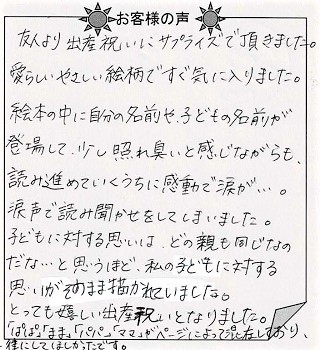 お客様の声
友人より出産祝いにサプライズで頂きました。
愛らしいやさしい絵柄ですぐ気に入りました。
絵本の中に自分の名前や、子どもの名前が
登場して、少し照れ臭いと感じながらも、
読み進めていくうちに感動で涙が…。
涙声で読み聞かせをしてしまいました。
子どもに対する思いは、どの親も同じなの
だな…と思うほど、私の子どもに対する
思いがそのまま描かれていました。
とっても嬉しい出産祝いとなりました。
「ぱぱ」「まま」、「パパ」「ママ」がページによって混在しており、
統一にしてほしかったです。